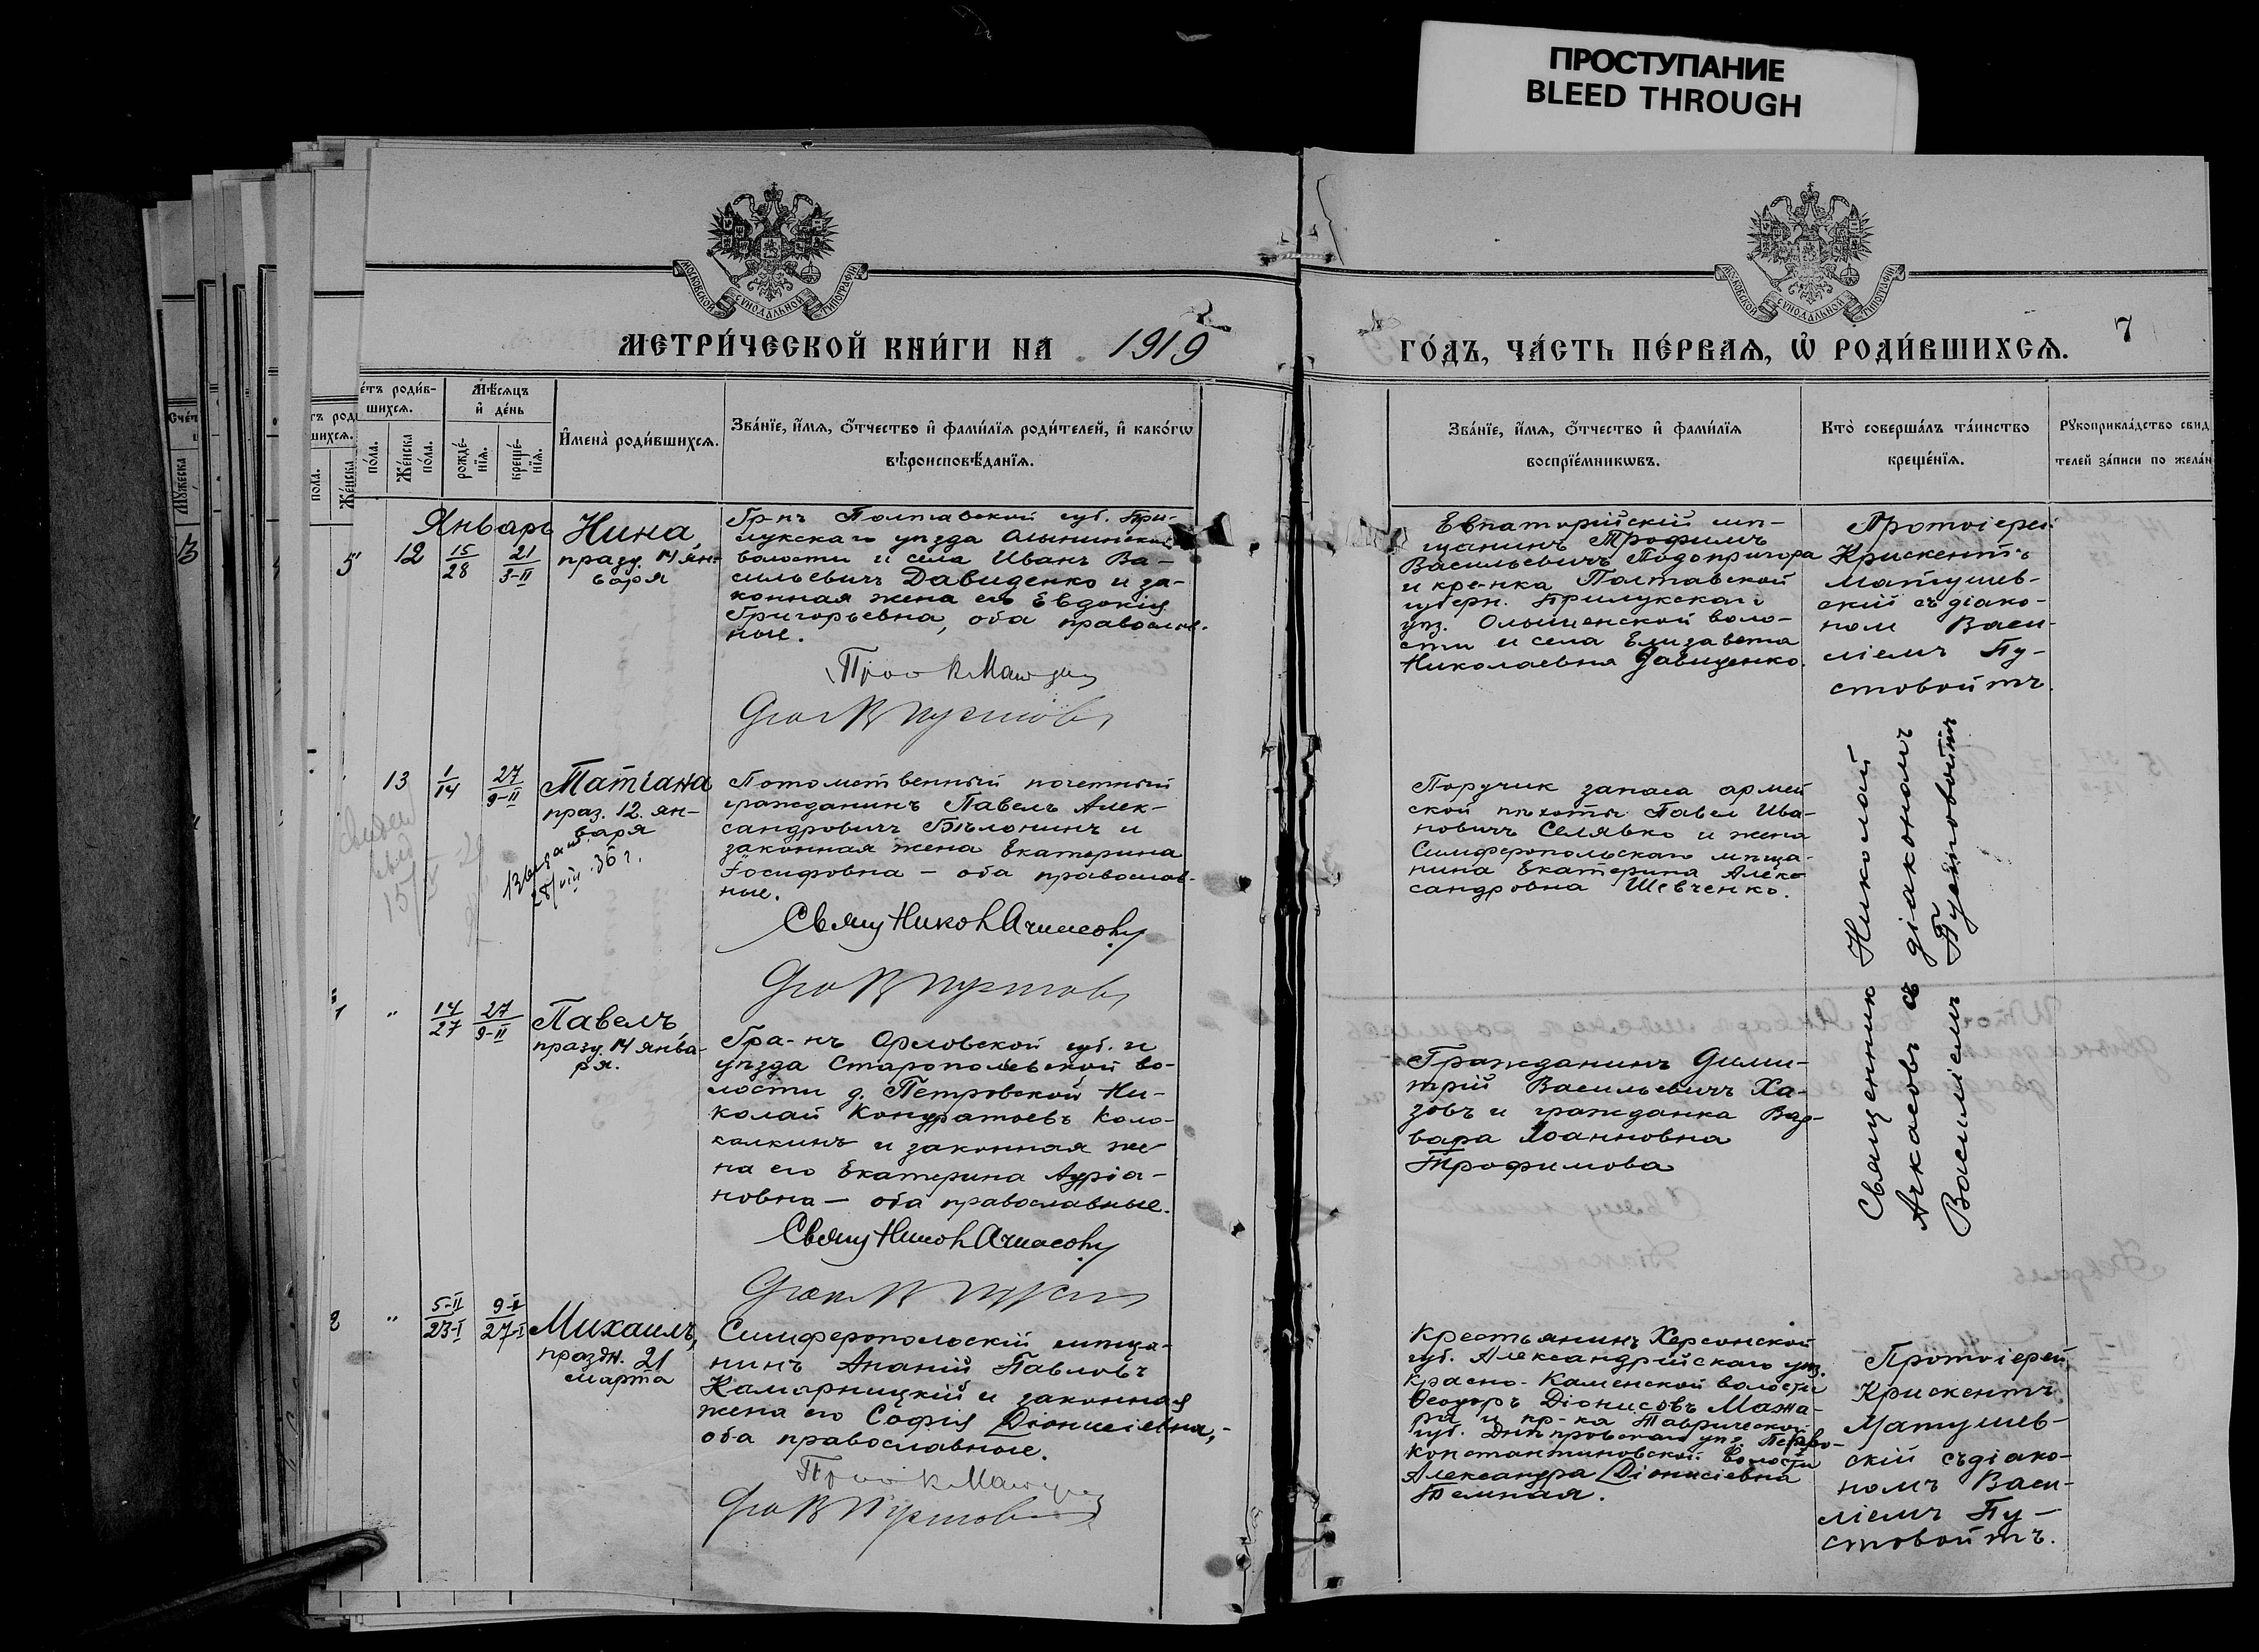 ПРОСТУПАНИЕ
BLEED THROUGH
МОСКОВСКОЙ СѴНОДАЛЬНОЙ ТИПОГРАФІИ
МОСКОВСКОЙ СѴНОДАЛЬНОЙ ТИПОГРАФІИ
МЕТРИ́ЧЕСКОЙ КНИ́ГИ НА 1919
ГО́ДЪ, ЧА́СТЬ ПЕ́РВАѦ, Ѡ РОДИ́ВШИХСѦ.
7
е́тъ роди́в-
шихсѧ.
по́ла.
Же́нска
по́ла.
Мѣ́сѧцъ
и҆ де́нь
рожде́-
нїѧ.
креще́-
нїѧ.
И҆мена̀ роди́вшихсѧ.
Зва́нїе, и҆́мѧ, ѻ҆́тчество и҆ фами́лїѧ роди́телей, и҆ како́гѡ
вѣроисповѣ́данїѧ.
Зва́нїе, и҆́мѧ, ѻ҆́тчество и҆ фами́лїѧ
воспрїе́мникѡвъ.
Кто̀ соверша́лъ та́инство
креще́нїѧ.
Рꙋкоприкла́дство свид
телей за́писи по жела́н
Счет
Мꙋ́жеска
13
5
Январь
12
15/28
21/3-II
Нина,
празд. 14 ян-
варя
Гр-нъ Полтавской губ. При-
лукскаго уѣзда Ольшинской
волости и села Иванъ Ва-
сильевичъ Давиденко и за-
конная жена его Евдокія
Григорьевна, оба православ-
ные.
Евпаторійскій мѣ-
щанинъ Трофимъ
Васильевичъ Подопригора
и кр-нка Полтавской
губерн. Прилукскаго
уѣз. Ольшенской воло-
сти и села Елизавета
Николаевна Давиденко.
Протоіерей
Крискентъ
Матушев-
скій съ діако-
ном Васи-
ліемъ Пу-
стовойтъ.
13
1/14
27/9-II
Татіана
праз. 12. ян-
варя
28/VIII 36 г.
Потомственный почетный
гражданинъ Павелъ Алек-
сандровичъ Бѣлонинъ и
законная жена Екатерина
Іосифовна — оба православ-
ные.
Поручик запаса армей
ской пѣхоты Павел Ива-
новичъ Селявко и жена
Симферопольскаго мѣща-
нина Екатерина Алек-
сандровна Шевченко.
Священник Николай
Ачкасовъ съ діакономъ
Василіемъ Пустовойтъ
1
"
14/27
27/9-II
Павелъ
празд. 14 янва-
ря.
Гра-нъ Орловской губ. и
уѣзда Старопольской во-
лости д. Петровской Ни-
колай Кондратьевъ Коло-
колкинъ и законная же
на его Екатерина Адріа-
новна — оба православные.
Гражданинъ Дими-
трій Васильевичъ Ха-
зовъ и гражданка Вар-
вара Іоанновна
Трофимова
2
"
5-II/23-I
9-II/27-I
Михаилъ,
праздн. 21
марта
Симферопольскій мѣща-
нинъ Ананій Павловъ
Камарницкій и законная
жена его Софія Діонисіевна,-
оба православные.
Крестьянинъ Херсонской
губ. Александрійскаго уѣз.
Красно-Каменской волости
Ѳеодоръ Діонисовъ Мажа-
ра и кр-ка Таврической
губ. Днѣпровскаго уѣз. Перво-
константиновской волости
Александра Діонисіевна
Темная.
Протоіерей
Крискентъ
Матушев-
скій съ діако-
номъ Васи-
ліемъ Пу-
стовойтъ.